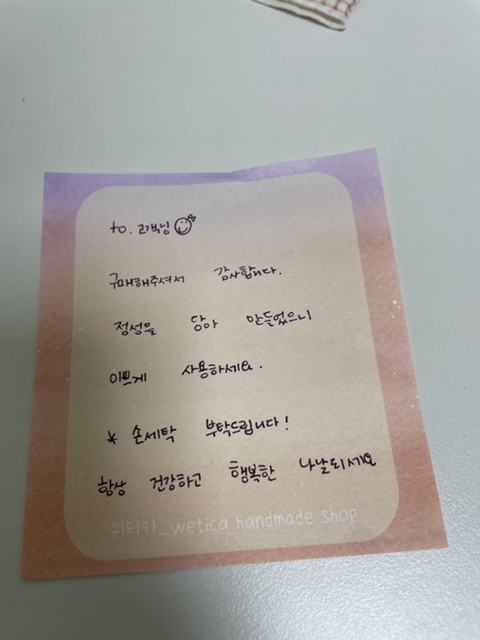 to. 고객님
구매해주셔서 감사합니다.
정성을 담아 만들었으니
이쁘게 사용하세요.
* 손세탁 부탁드립니다!
항상 건강하고 행복한 나날되세요
위티카_wetica handmade shop